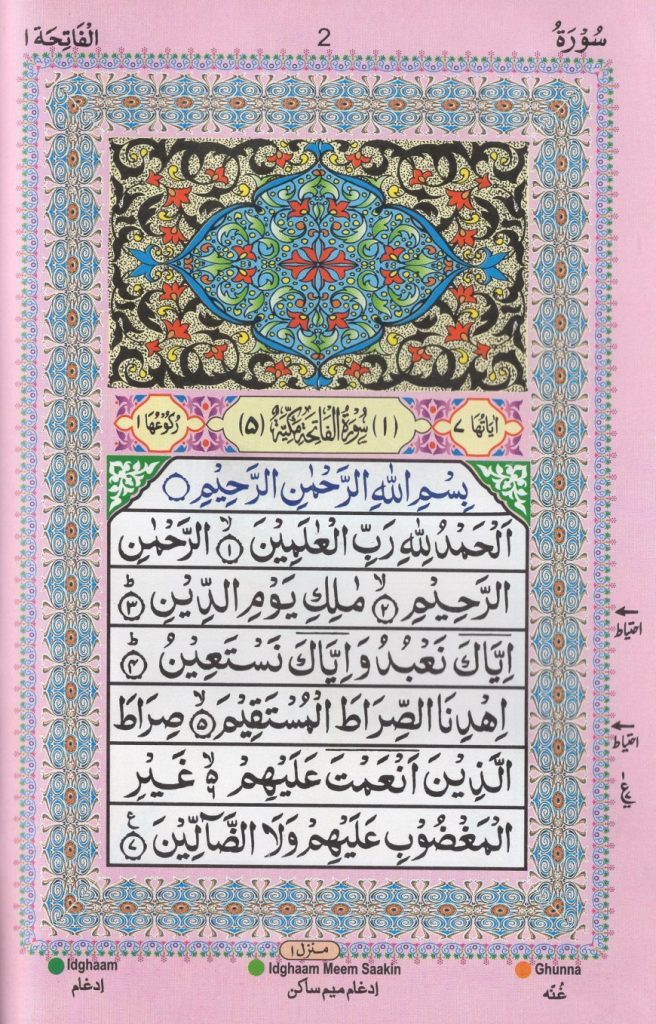 سُوْرَةُ 2 الْفَاتِحَة ١
اٰيَاتُهَا ٧ (١) سُوْرَةُ الْفَاتِحَةِ مَكِّيَّةٌ (٥) رُكُوْعُهَا ١
بِسْمِ اللّٰهِ الرَّحْمٰنِ الرَّحِيْمِ ○
اَلْحَمْدُ لِلّٰهِ رَبِّ الْعٰلَمِيْنَ ۙ﴿١﴾ الرَّحْمٰنِ
الرَّحِيْمِ ۙ﴿٢﴾ مٰلِكِ يَوْمِ الدِّيْنِ ؕ﴿٣﴾
اِيَّاكَ نَعْبُدُ وَ اِيَّاكَ نَسْتَعِيْنُ ؕ﴿٤﴾
اِهْدِنَا الصِّرَاطَ الْمُسْتَقِيْمَ ۙ﴿٥﴾ صِرَاطَ
الَّذِيْنَ اَنْعَمْتَ عَلَيْهِمْ ۙ۵ ٦ غَيْرِ
الْمَغْضُوْبِ عَلَيْهِمْ وَلَا الضَّآلِّيْنَ ﴿٧﴾ ع
احتیاط
احتیاط
منزل ١
Idghaam Idghaam Meem Saakin Ghunna
ادغام ادغام میم ساکن غُنّہ